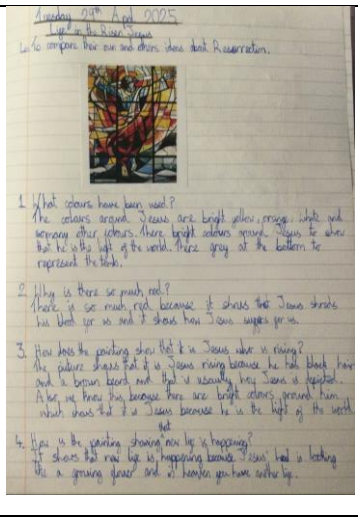 Tuesday 29th April 2025
Life in the Risen Jesus
Lo: To compare their own and others ideas about Resurrection.
1. What colours have been used?
The colours around Jesus are bright yellow, orange, white and
so many other colours. There bright colours around Jesus to show
that he is the light of the world. There grey at the bottom to
represent the tomb.
2. Why is there so much red?
There is so much red because it shows that Jesus shreds
his blood for us and it shows how Jesus suffers for us.
3. How does the painting show that it is Jesus who is rising?
The picture shows that it is Jesus rising because he has black hair
and a brown beard and that is usually how Jesus is depicted.
Also, we know this because there are bright colours around him
which shows that it is Jesus because he is the light of the world.
4. How is the painting showing that new life is happening?
It shows that new life is happening because Jesus' head is looking
like a growing flower and in heaven you have another life.